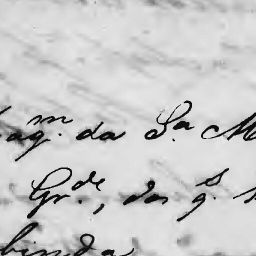 ag.m da S.a M
Gr.de, dos q.s
binda